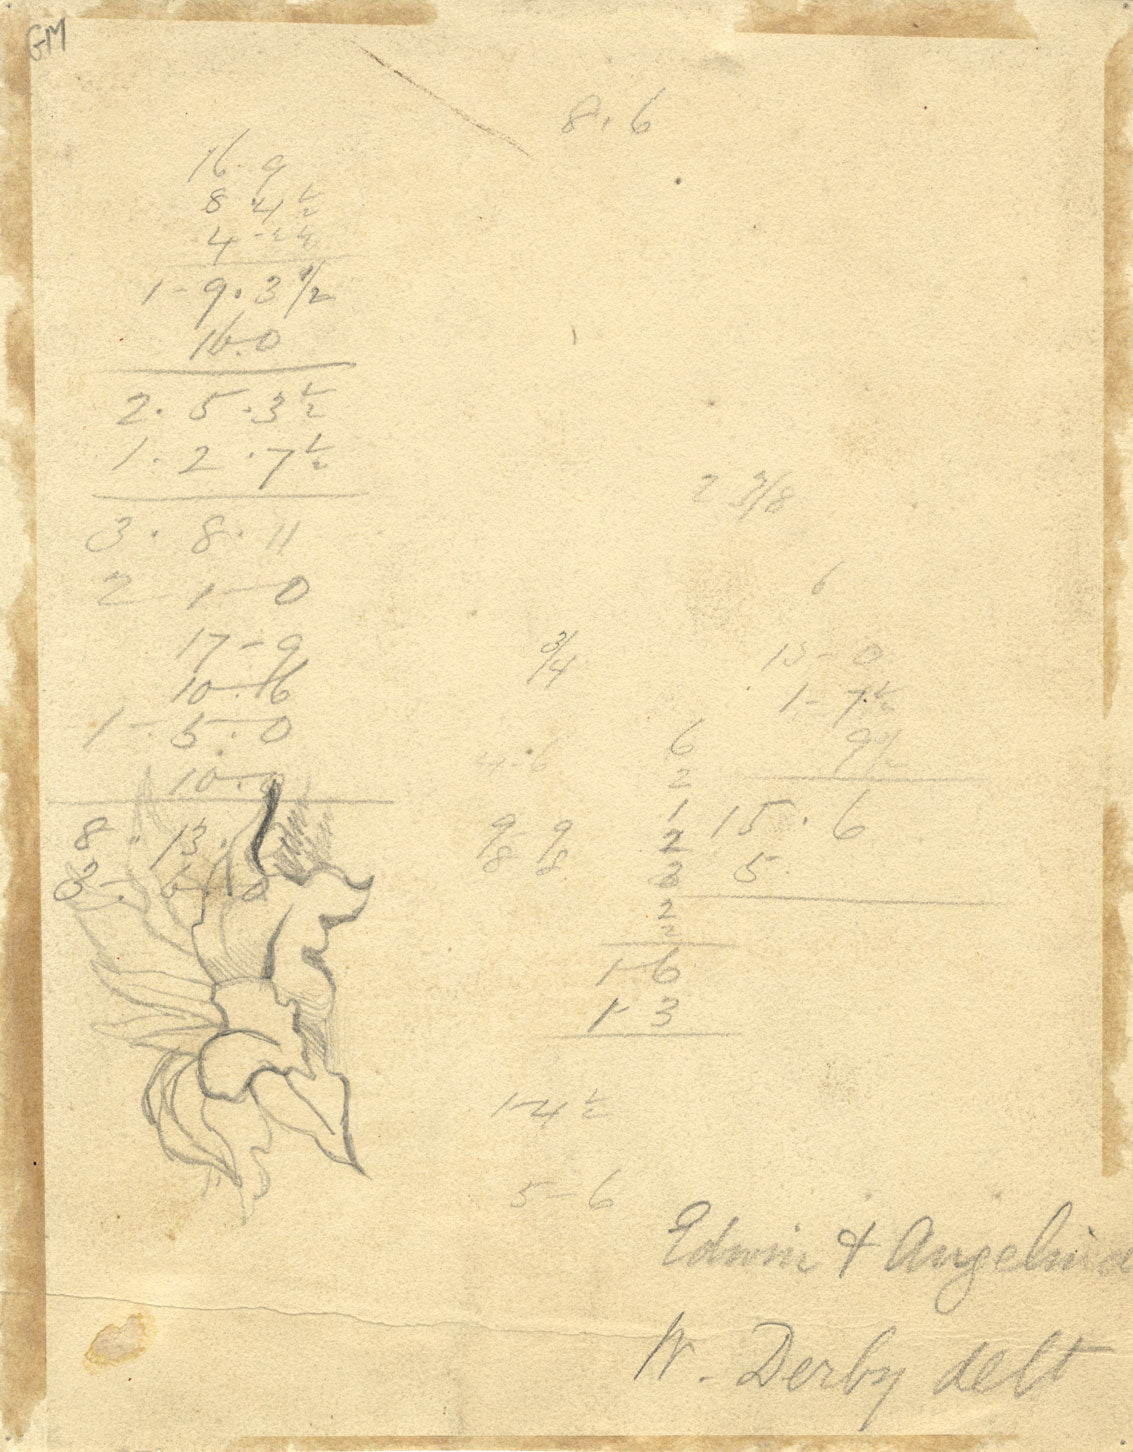 GM
8 . 6
16-9
8 4 1/2
1-9.3 1/2
16.0
2. 5 .3 1/2
1. 2 .7 1/2
3. 8. 11
2 1-0
17-9
10.6
1-5.0
10.0
8 . 13 .
8. 6. 0
2 3/8
6
3/4
13-0
1-7 1/2
9 1/2
15 . 6
5.
4.6
9/8 9/8
6
2
1
2
3
2
2
1-6
1-3
1-4 1/2
5-6
Edwin & Angelina
W. Derby delt